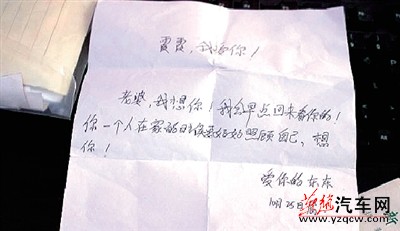 霞霞,我爱你!
老婆,我想你!我会早点回来看你的!
你一个人在家的时候要好好照顾自己,想
你!
爱你的东东
10月25日
汽车网
www.yzqcw.com